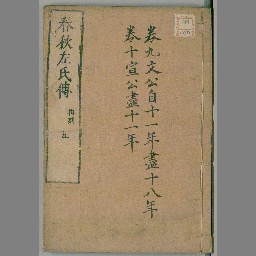 卷九文公自十一年盡十八年
卷十宣公盡十一年
春秋左氏傳
五